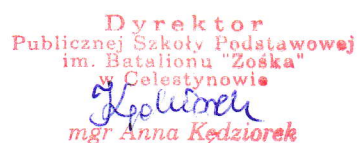 Dyrektor
Publicznej Szkoły Podstawowej
im. Batalionu "Zośka"
w Celestynowie
Kędziorek
mgr Anna Kędziorek